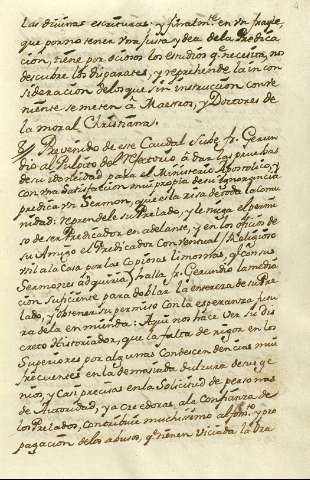 las divinas escrituras: y finalmte. en vn frayle,
que por no tener vna justa ydea de la Predica
cion, tiene por ociosos los estudios qe. necesita, nos
descubre los disparates, y reprehende la incon
sideracion de los que sin instruccion conve
niente se meten à Maestros, y Doctores de
la moral Christiana.
Prevenido de ese Caudal sube fr. Gerun
dio al Pulpito del Refectorio à dar las pruebas
de su idoneidad para el Ministerio Apostolico, y
con vna Satisfaccion mui propia de su ignorancia
predica vn Sermon, que es la risa de toda la Comu
nidad: reprendele su Prelado, y le niega el permi
so de ser Predicador en adelante, y en los oficios de
su Amigo el Predicador Conventual (Religioso
vtil a la Casa por las Copiosas limosnas, qe. con sus
Sermones adquiria) halla fr. Gerundio la media
cion suficiente para doblar la entereza de su Pre
lado, y obtener su permiso con la esperanza
de la enmienda: Aqui nos hace ver su dis
creto Historiador, que la falta de rigor en los
Superiores por algunas Condescendencias mui
frecuentes en la demasiada dulzura de su ge
nio, y casi precisas en la Solicitud de personas
de Autoridad, y acrehedoras a la Confianza de
los Prelados, contribuie muchissimo al y pro
pagacion de los abusos, qe. tienen viciada la Ora